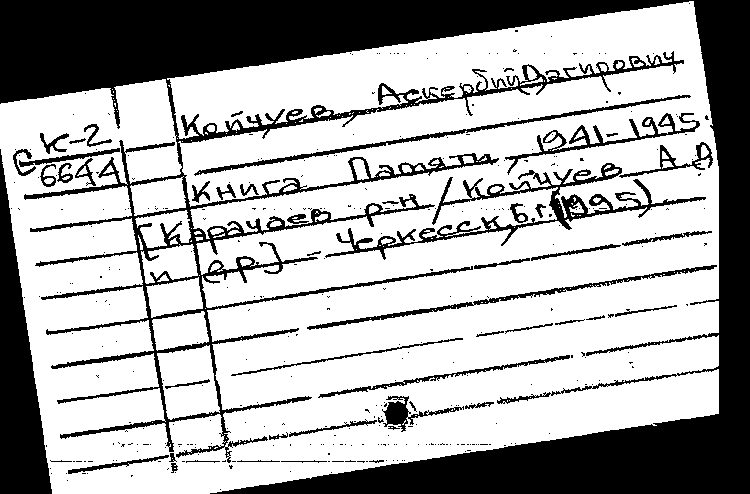 Койчуев, Аскербий Дагирович
С К-2
6644
Книга Памяти, 1941-1945.
[Карачаев р-н / Койчуев А Д
и др.] - Черкесск, Б.г. (1995)